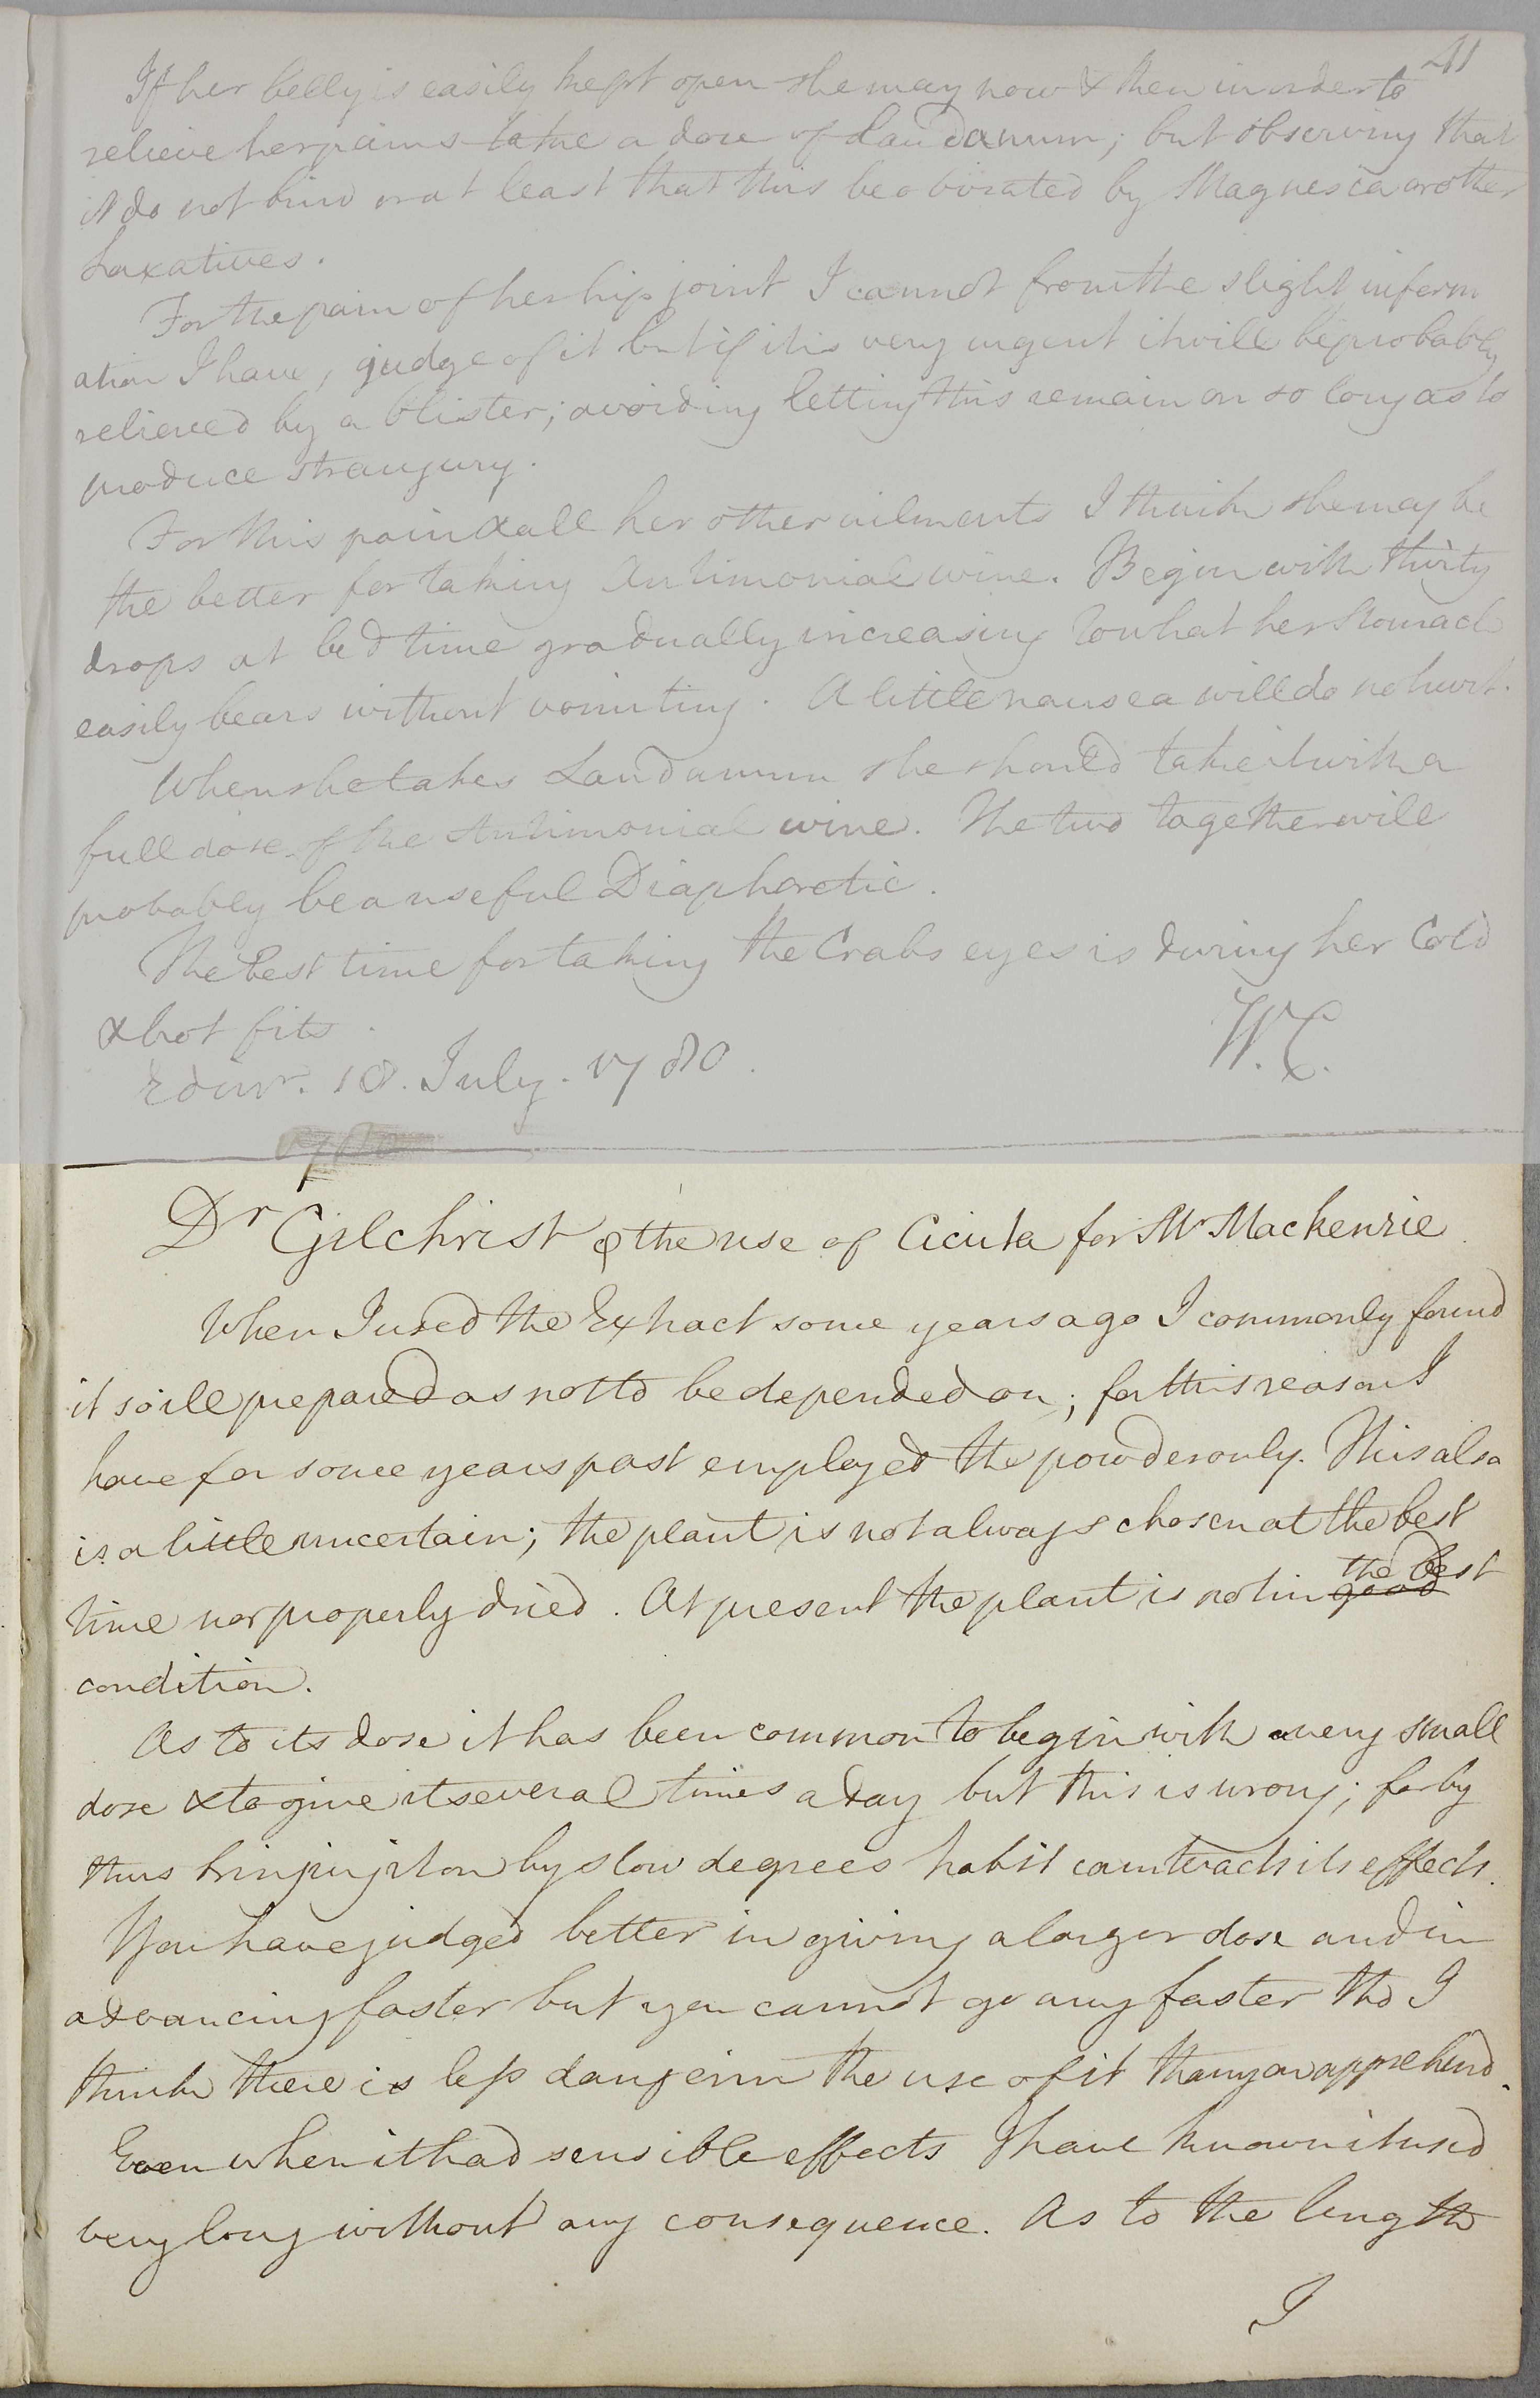 41
If her belly is easily kept open she may now & then in order to
relieve her pains take a dose of Laudanum; but observing that
it do not bind or at least that this be obviated by Magnesia or other
Laxatives.
For the pain of her hip joint I cannot from the slight inform
ation I have, judge of it but if it is very urgent it will be probably
relieved by a blister; avoiding letting this remain on so long as to
produce strangury.
For this pain & all her other ailments I think she may be
the better for taking Antimonial wine. Begin with thirty
drops at bed time gradually increasing to what her stomach
easily bears without vomiting. A little nausea will do no hurt.
When she takes Laudanum she should take it with a
full dose of the Antimonial wine. The two together will
probably be a useful Diaphoretic.
The best time for taking the Crabs eyes is during her Cold
& hot fits.
W.C.
Edinr. 18. July. 1780.
Dr Gilchrist & the use of Cicuta for Mr Mackenzie.
When I used the Extract some years ago I commonly found
it so ill prepared as not to be depended on; for this reason I
have for some years past employed the powder only. This also
is a little uncertain; the plant is not always chosen at the best
time nor properly dried. At present the plant is not in good the best
condition.
As to its dose it has been common to begin with a very small
dose & to give it several times a day but this is wrong; for by
thus bringing it on by slow degrees habit counteracts its effects.
You have judged better in giving a larger dose and in
advancing faster but you cannot go any faster tho I
think there is less danger in the use of it than you apprehend.
Even when it had sensible effects I have known it used
very long without any consequence. As to the length
I